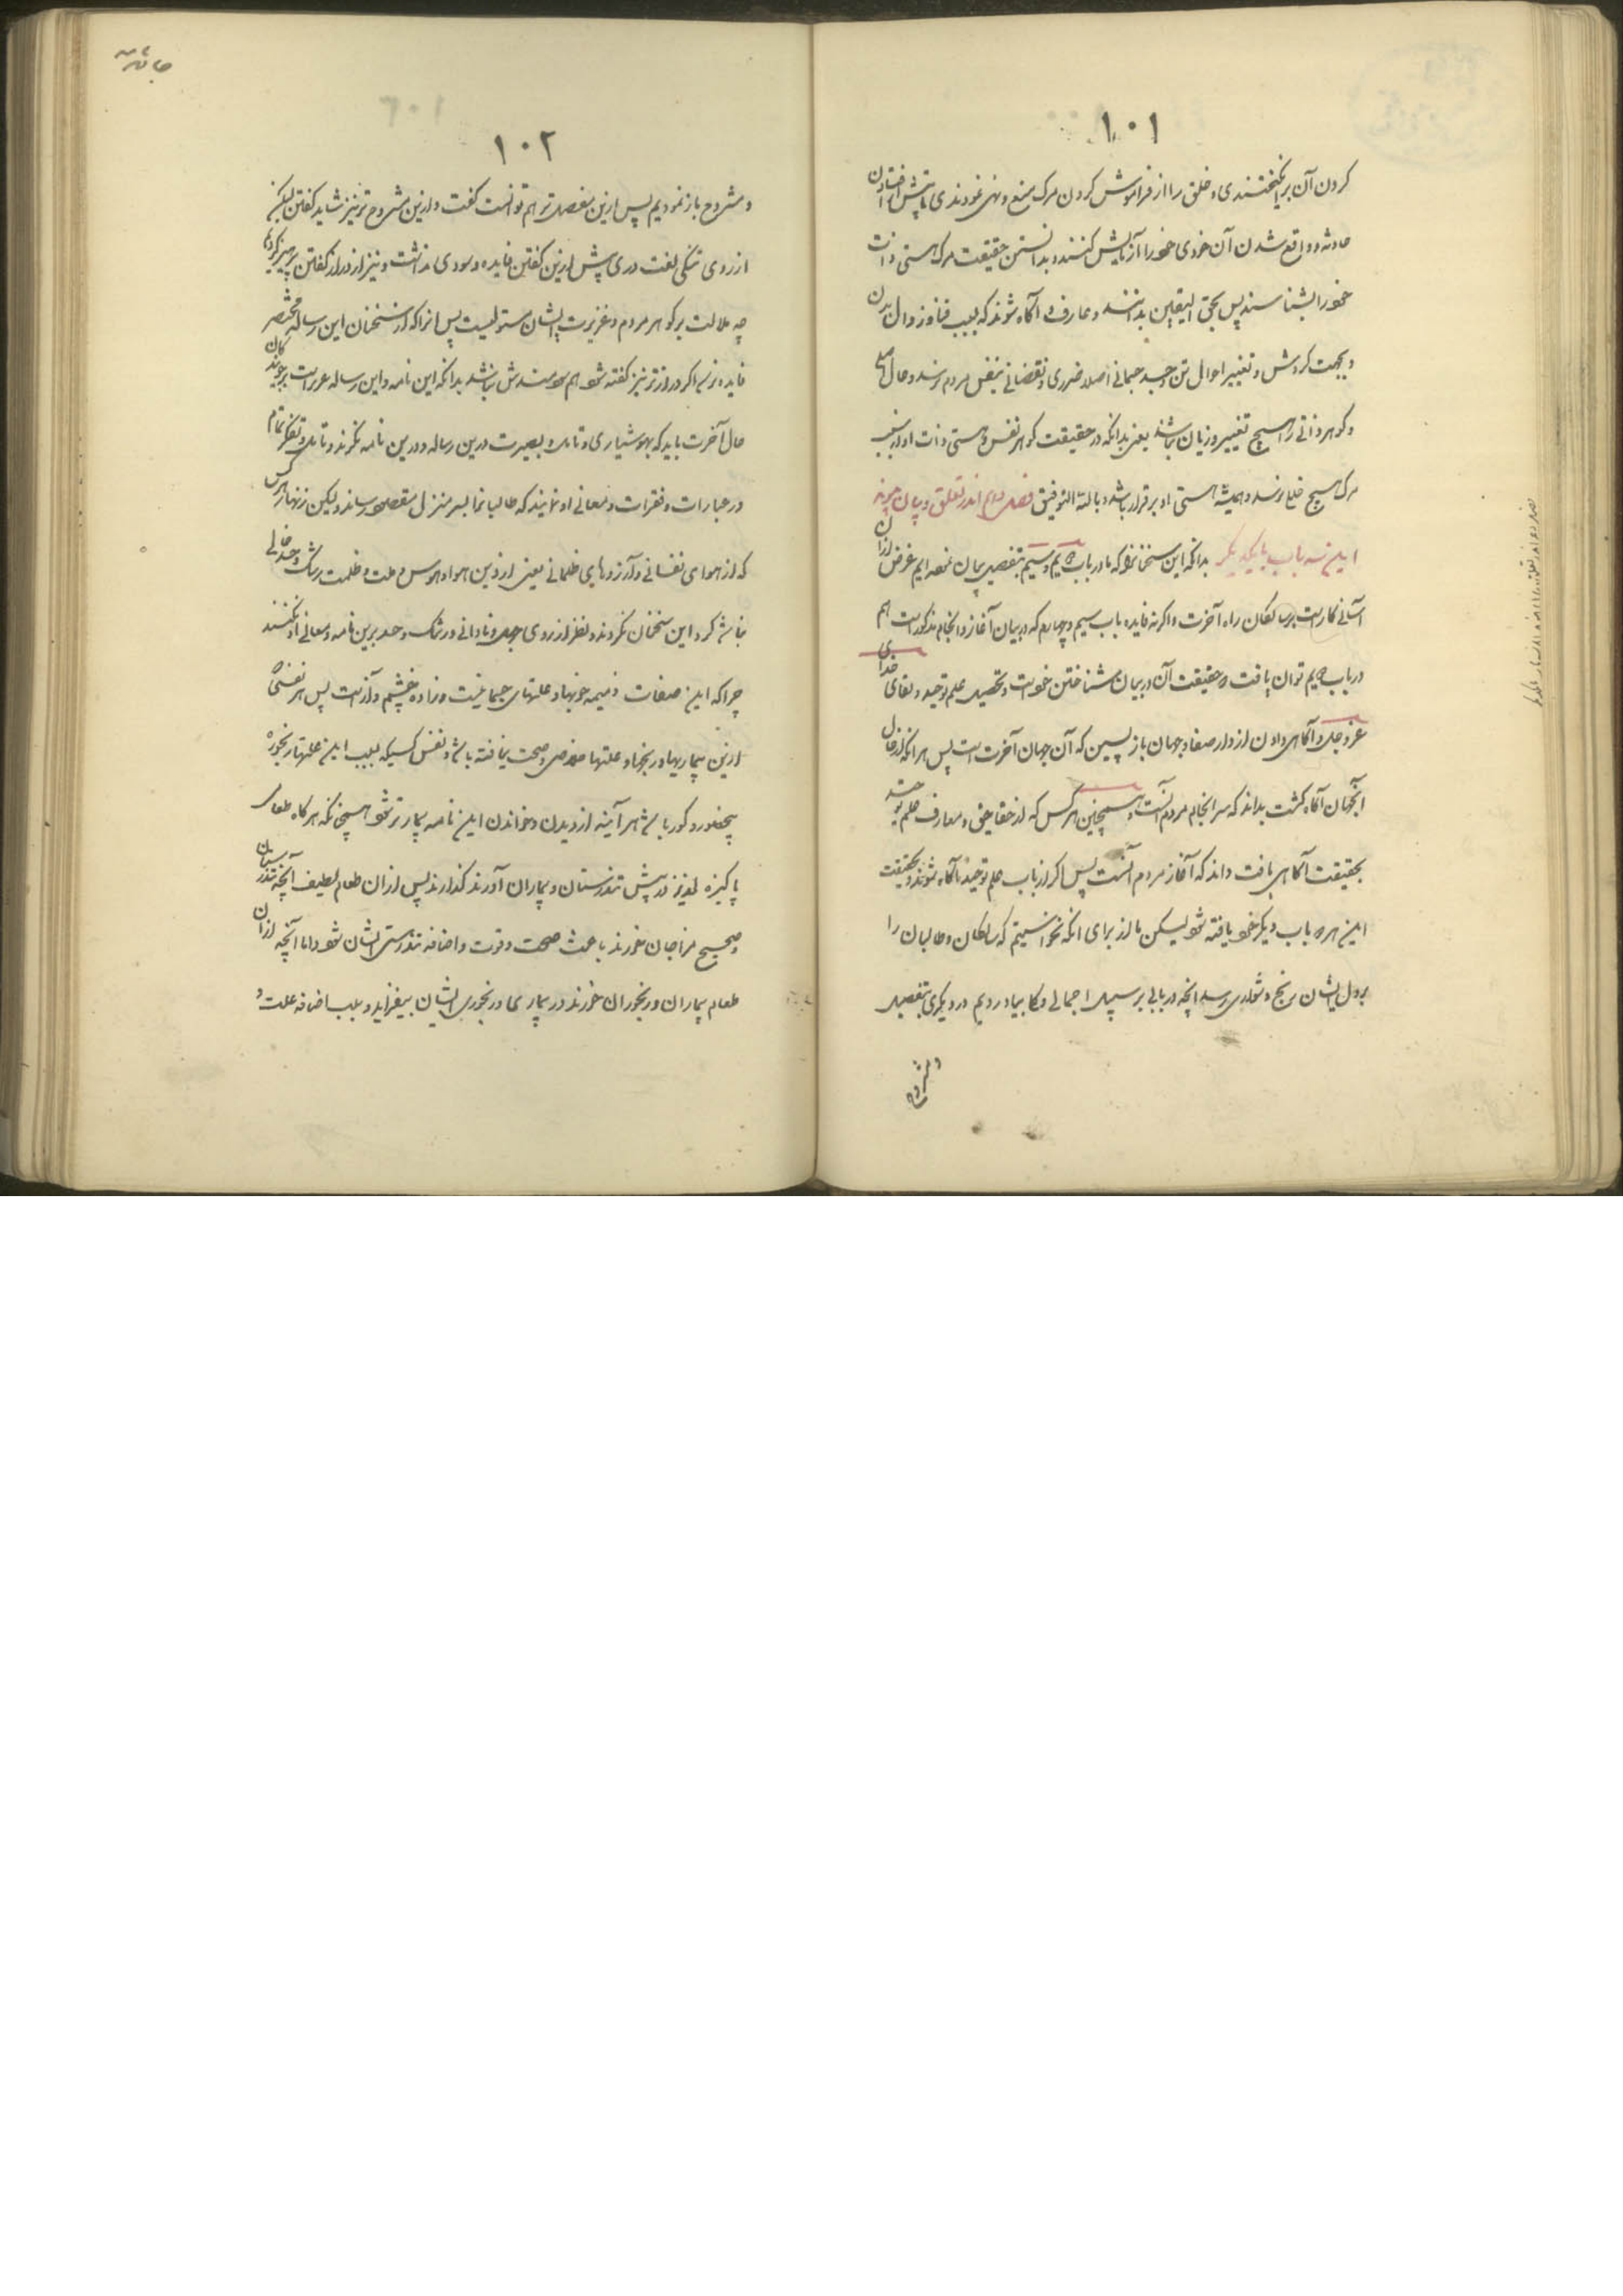 ۱۰۱
کردن آن برانگیختندی و خلق را از فراموش کردن مرک منع و نهی نمودندی تا پیش از افتادن
حادثه و واقع شدن آن خودی خود را آزمایش کنند و بدانستن حقیقت مرک هستی ذات
خود را بشناسند پس بحق الیقین بدانند و عارف و آگاه شوند که بسبب فنا و زوال بدن
و بجهت کردش و تغییر احوال تن و جسد جسمانی اصلا ضرری و نقصانی بنفس مردم نرسد و حال
و کوهر ذاتی را هیچ تغییر و زیان نباشد یعنی بدانکه در حقیقت کوهر نفس و هستی ذات او را بسبب
مرک هیچ خلل نرسد و همیشه هستی او برقرار باشد و بالله التوفیق فصل دوم اندر تعلق و بیان پیوند
این سه باب بایکدیکر بدانکه این سخنان که ما در باب دویم و سیم بتفصیل بیان نموده‌ایم غرض از آن
آسانی کار است بر سالکان راه آخرت و اکرنه فایده باب سیم و چهارم که در بیان آغاز و انجام مذکور است هم
در باب دویم توان یافت و حقیقت آن در بیان شناختن خود است و تحصیل علم توحید و لقای خدای
عز و جل و آگاهی دادن از دار صفا و جهان باز پسین که آن جهان آخرت است پس هر انکه از حال
انجهان آگاه کشت بداند که سرانجام مردم آنست و همچنین هر کس که از حقایق و معارف علم توحید
بحقیقت آگاهی یافت داند که آغاز مردم آنست پس اکر از باب علم توحید آگاه شوند حقیقت
این هر دو باب دیکر خود یافته شود لیکن ما از برای انکه نخواستیم که سالکان و طالبان را
بر دل ایشان رنج و دشواری رسد انچه در بابی بر سبیل اجمالی و بیاوردیم در دیکری بتفصیل
و مشروح
۱۰۲
و مشروح باز نمودیم پس ازین مفصلتر هم توانست کفت و ازین مشروح تر نیز شاید کفتن لیکن
از روی تنکی لغت دری پیش ازین کفتن فایده و سودی نداشت و نیز از دراز کفتن پرهیز کردیم
چه ملالت بر کوهر مردم و غریزت ایشان مستولیست پس انرا که از سخنان این رساله مختصر
فایده نرسد اکر درازتر نیز کفته شود هم سودمندش نباشد بدانکه این نامه و این رساله مر
حال آخرت باید که بهوشیاری و تامل و بصیرت درین رساله و درین نامه نکرند و تامل و تفکر تمام
در عبارات و فقرات و معانی او نمایند که طالبانرا بسر منزل مقصود رساند ولیکن زنهار هر کس
که از هوای نفسانی و آرزوهای ظلمانی یعنی ازین هوا و هوس و علت و ظلمت رشک و حسد خالی
نباشد کرد این سخنان نکردند و نظر از روی جهل و نادانی و رشک و حسد برین نامه و معانی او نکنند
چرا که این صفات ذمیمه خوبها و علتهای جسمانیست و زاده خشم و آزست پس هر نفسی که
ازین بیماریها و رنجها و علتها خلاصی و صحت نیافته باشد و نفس کسیکه بسبب این علتها رنجور و
و کور باشد هر آینه از دیدن و خواندن این نامه بیمارتر شود همچنانکه هرکاه طعام
پاکیزه لذیذ در پیش تندرستان و بیماران آورند و کذارند پس از ان طعام لطیف آنچه تندرستان
و صحیح مزاجان خورند باعث صحت و قوت و اضافه تندرستی ایشان شود و اما آنچه از ان
طعام بیماران و رنجوران خورند در بیماری و رنجوری ایشان بیفزاید و سبب اضافه علت و